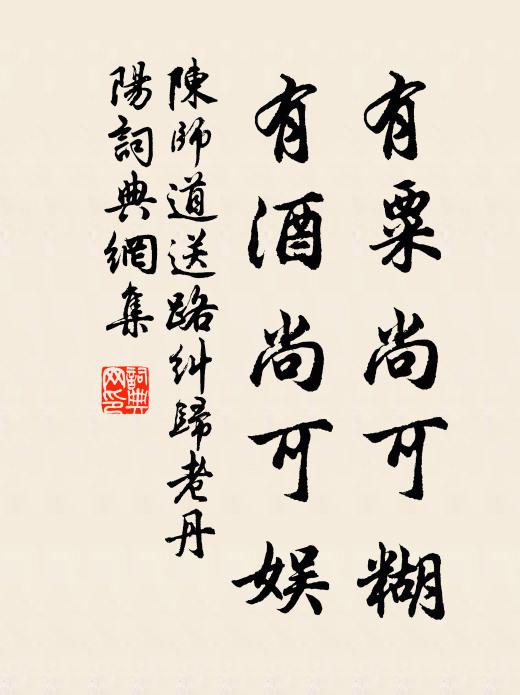 有粟尚可糊
有酒尚可娱
陳師道送路糾歸老丹
陽詞典網集
詞典
网印